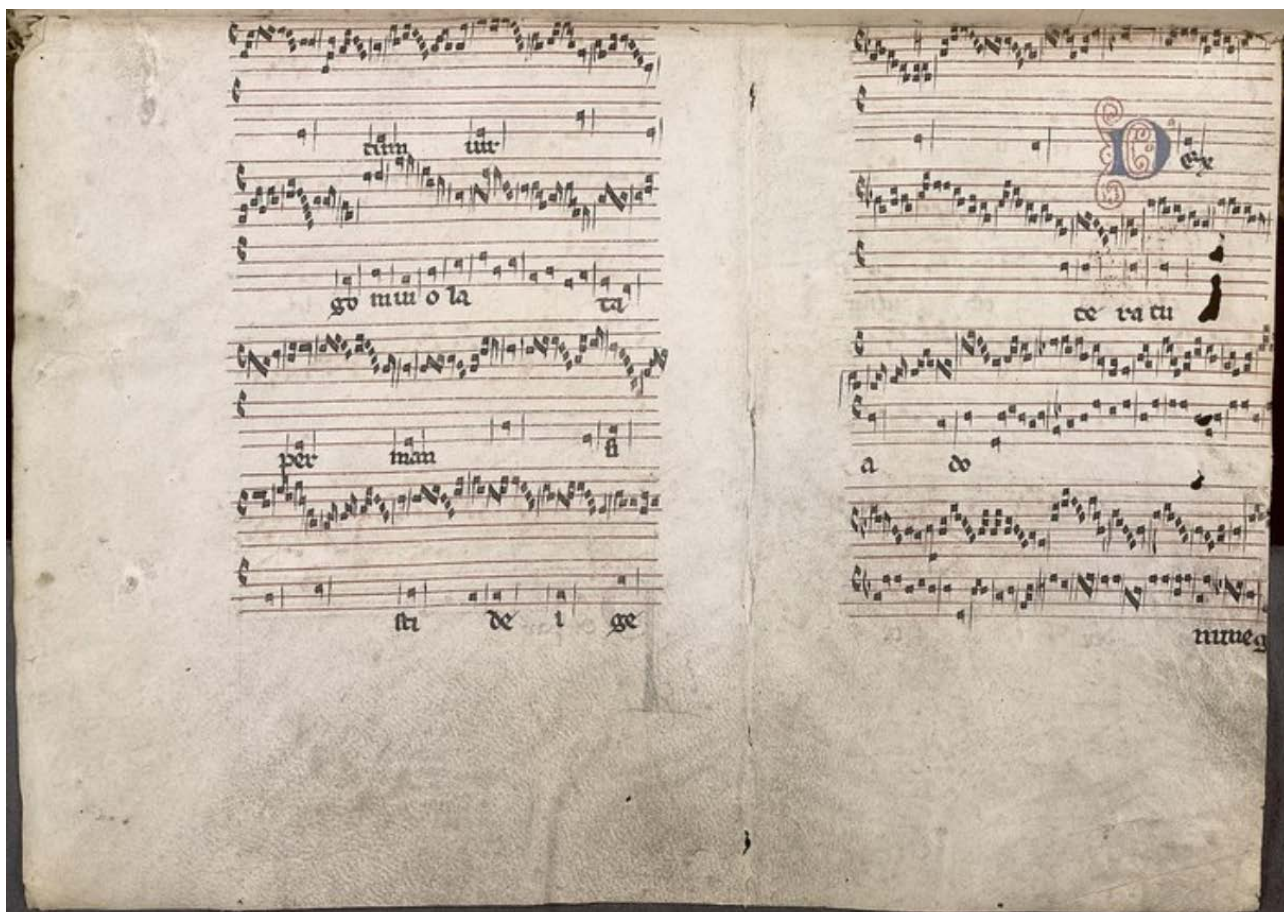 tum uir
go in ui o la ta
per man si
sti de i ge
Dex
te ra tu
a do
mine g